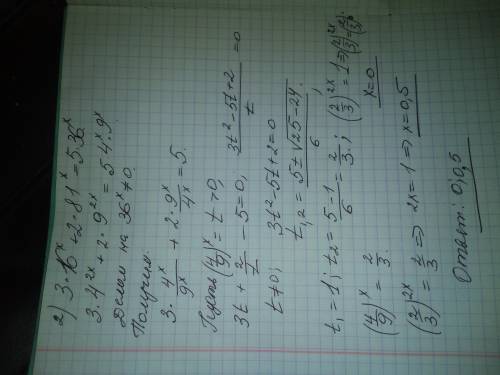 2) 3·16^x + 2·81^x = 5·36^x
3·4^{2x} + 2·9^{2x} = 5·4^x·9^x
Делим на 36^x ≠ 0
Получим:
3·\frac{4^x}{9^x} + 2·\frac{9^x}{4^x} = 5.
Пусть (\frac{4}{9})^x = t > 0,
3t + \frac{2}{t} - 5 = 0, \frac{3t^2 - 5t + 2}{t} = 0
t ≠ 0; 3t^2 - 5t + 2 = 0
t_{1,2} = \frac{5 ± \sqrt{25 - 24}}{6};
t_1 = 1; t_2 = \frac{5 - 1}{6} = \frac{2}{3}; (\frac{2}{3})^{2x} = 1 ⇒ (\frac{2}{3})^{2x} = (\frac{2}{3})^0
x = 0
(\frac{4}{9})^x = \frac{2}{3}.
(\frac{2}{3})^{2x} = \frac{2}{3} ⇒ 2x = 1 ⇒ x = 0,5
Ответ: 0; 0,5